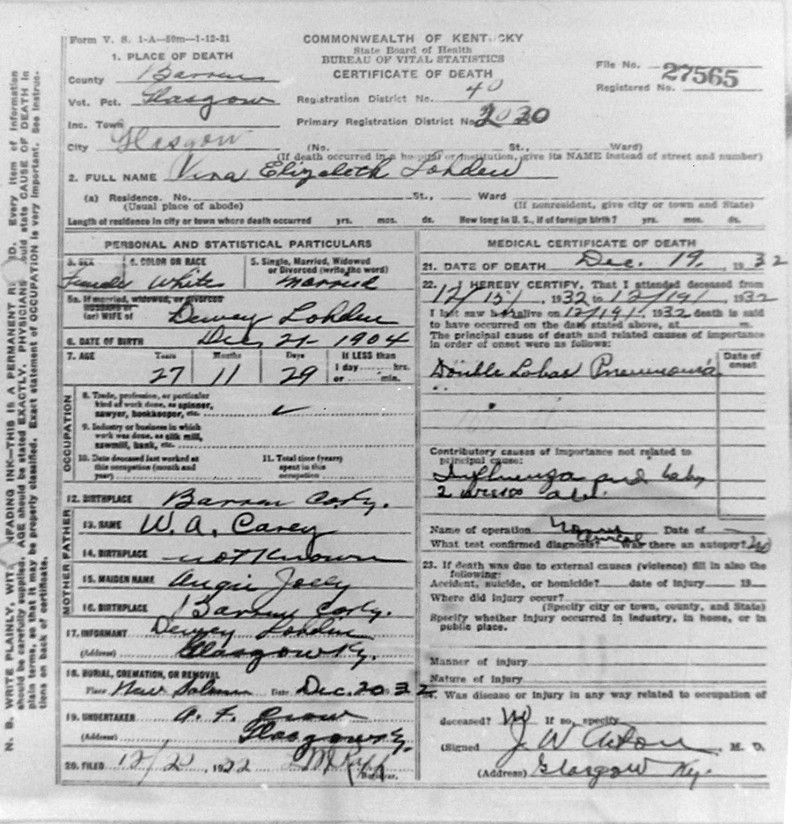 Form V. S. 1-A—50m—1-12-31
COMMONWEALTH OF KENTUCKY
State Board of Health
BUREAU OF VITAL STATISTICS
CERTIFICATE OF DEATH
File No. 27565
Registered No.
1. PLACE OF DEATH
County Barren
Vot. Pct. Glasgow
Registration District No. 40
Inc. Town
Primary Registration District No. 2020
City Glasgow (No. St., Ward)
(If death occurred in a hospital or institution, give its NAME instead of street and number)
2. FULL NAME Vina Elizabeth Lohden
(a) Residence. No. St., Ward
(Usual place of abode) (If nonresident, give city or town and State)
Length of residence in city or town where death occurred yrs. mos. ds. How long in U. S., if of foreign birth? yrs. mos. ds.
PERSONAL AND STATISTICAL PARTICULARS
3. SEX 4. COLOR OR RACE 5. Single, Married, Widowed or Divorced (write the word)
Female White Married
5a. If married, widowed, or divorced
HUSBAND of
(or) WIFE of Dewey Lohden
6. DATE OF BIRTH Dec 21 1904
7. AGE Years Months Days If LESS than
27 11 29 1 day hrs.
or min.
OCCUPATION
8. Trade, profession, or particular
kind of work done, as spinner,
sawyer, bookkeeper, etc. ✓
9. Industry or business in which
work was done, as silk mill,
sawmill, bank, etc.
10. Date deceased last worked at
this occupation (month and
year)
11. Total time (years)
spent in this
occupation
12. BIRTHPLACE Barren Co Ky.
FATHER
13. NAME W. A. Carey
14. BIRTHPLACE not Known
MOTHER
15. MAIDEN NAME Angie Jolly
16. BIRTHPLACE Barren Co Ky.
17. INFORMANT Dewey Lohden
(Address) Glasgow Ky.
18. BURIAL, CREMATION, OR REMOVAL
Place New Salem Date Dec. 20 32
19. UNDERTAKER A. F. Crow
(Address) Glasgow Ky.
20. FILED 1932
Registrar.
MEDICAL CERTIFICATE OF DEATH
21. DATE OF DEATH Dec. 19, 1932
22. I HEREBY CERTIFY, That I attended deceased from
12/15/, 1932 to 12/19/, 1932
I last saw her alive on 12/19/, 1932 death is said
to have occurred on the date stated above, at m.
The principal cause of death and related causes of importance
in order of onset were as follows:
Date of
onset
Double Lobar Pneumonia
Contributory causes of importance not related to
principal cause:
Influenza and baby
2 weeks old.
Name of operation None Date of
What test confirmed diagnosis? Clinical Was there an autopsy? no
23. If death was due to external causes (violence) fill in also the
following:
Accident, suicide, or homicide? date of injury 19
Where did injury occur?
(Specify city or town, county, and State)
Specify whether injury occurred in industry, in home, or in
public place.
Manner of injury
Nature of injury
24. Was disease or injury in any way related to occupation of
deceased? No If so, specify
(Signed J. W. Acton, M. D.
(Address) Glasgow Ky.
N. B. WRITE PLAINLY, WITH UNFADING INK—THIS IS A PERMANENT RECORD. Every item of information
should be carefully supplied. AGE should be stated EXACTLY. PHYSICIANS should state CAUSE OF DEATH in
plain terms, so that it may be properly classified. Exact statement of OCCUPATION is very important. See instruc-
tions on back of certificate.